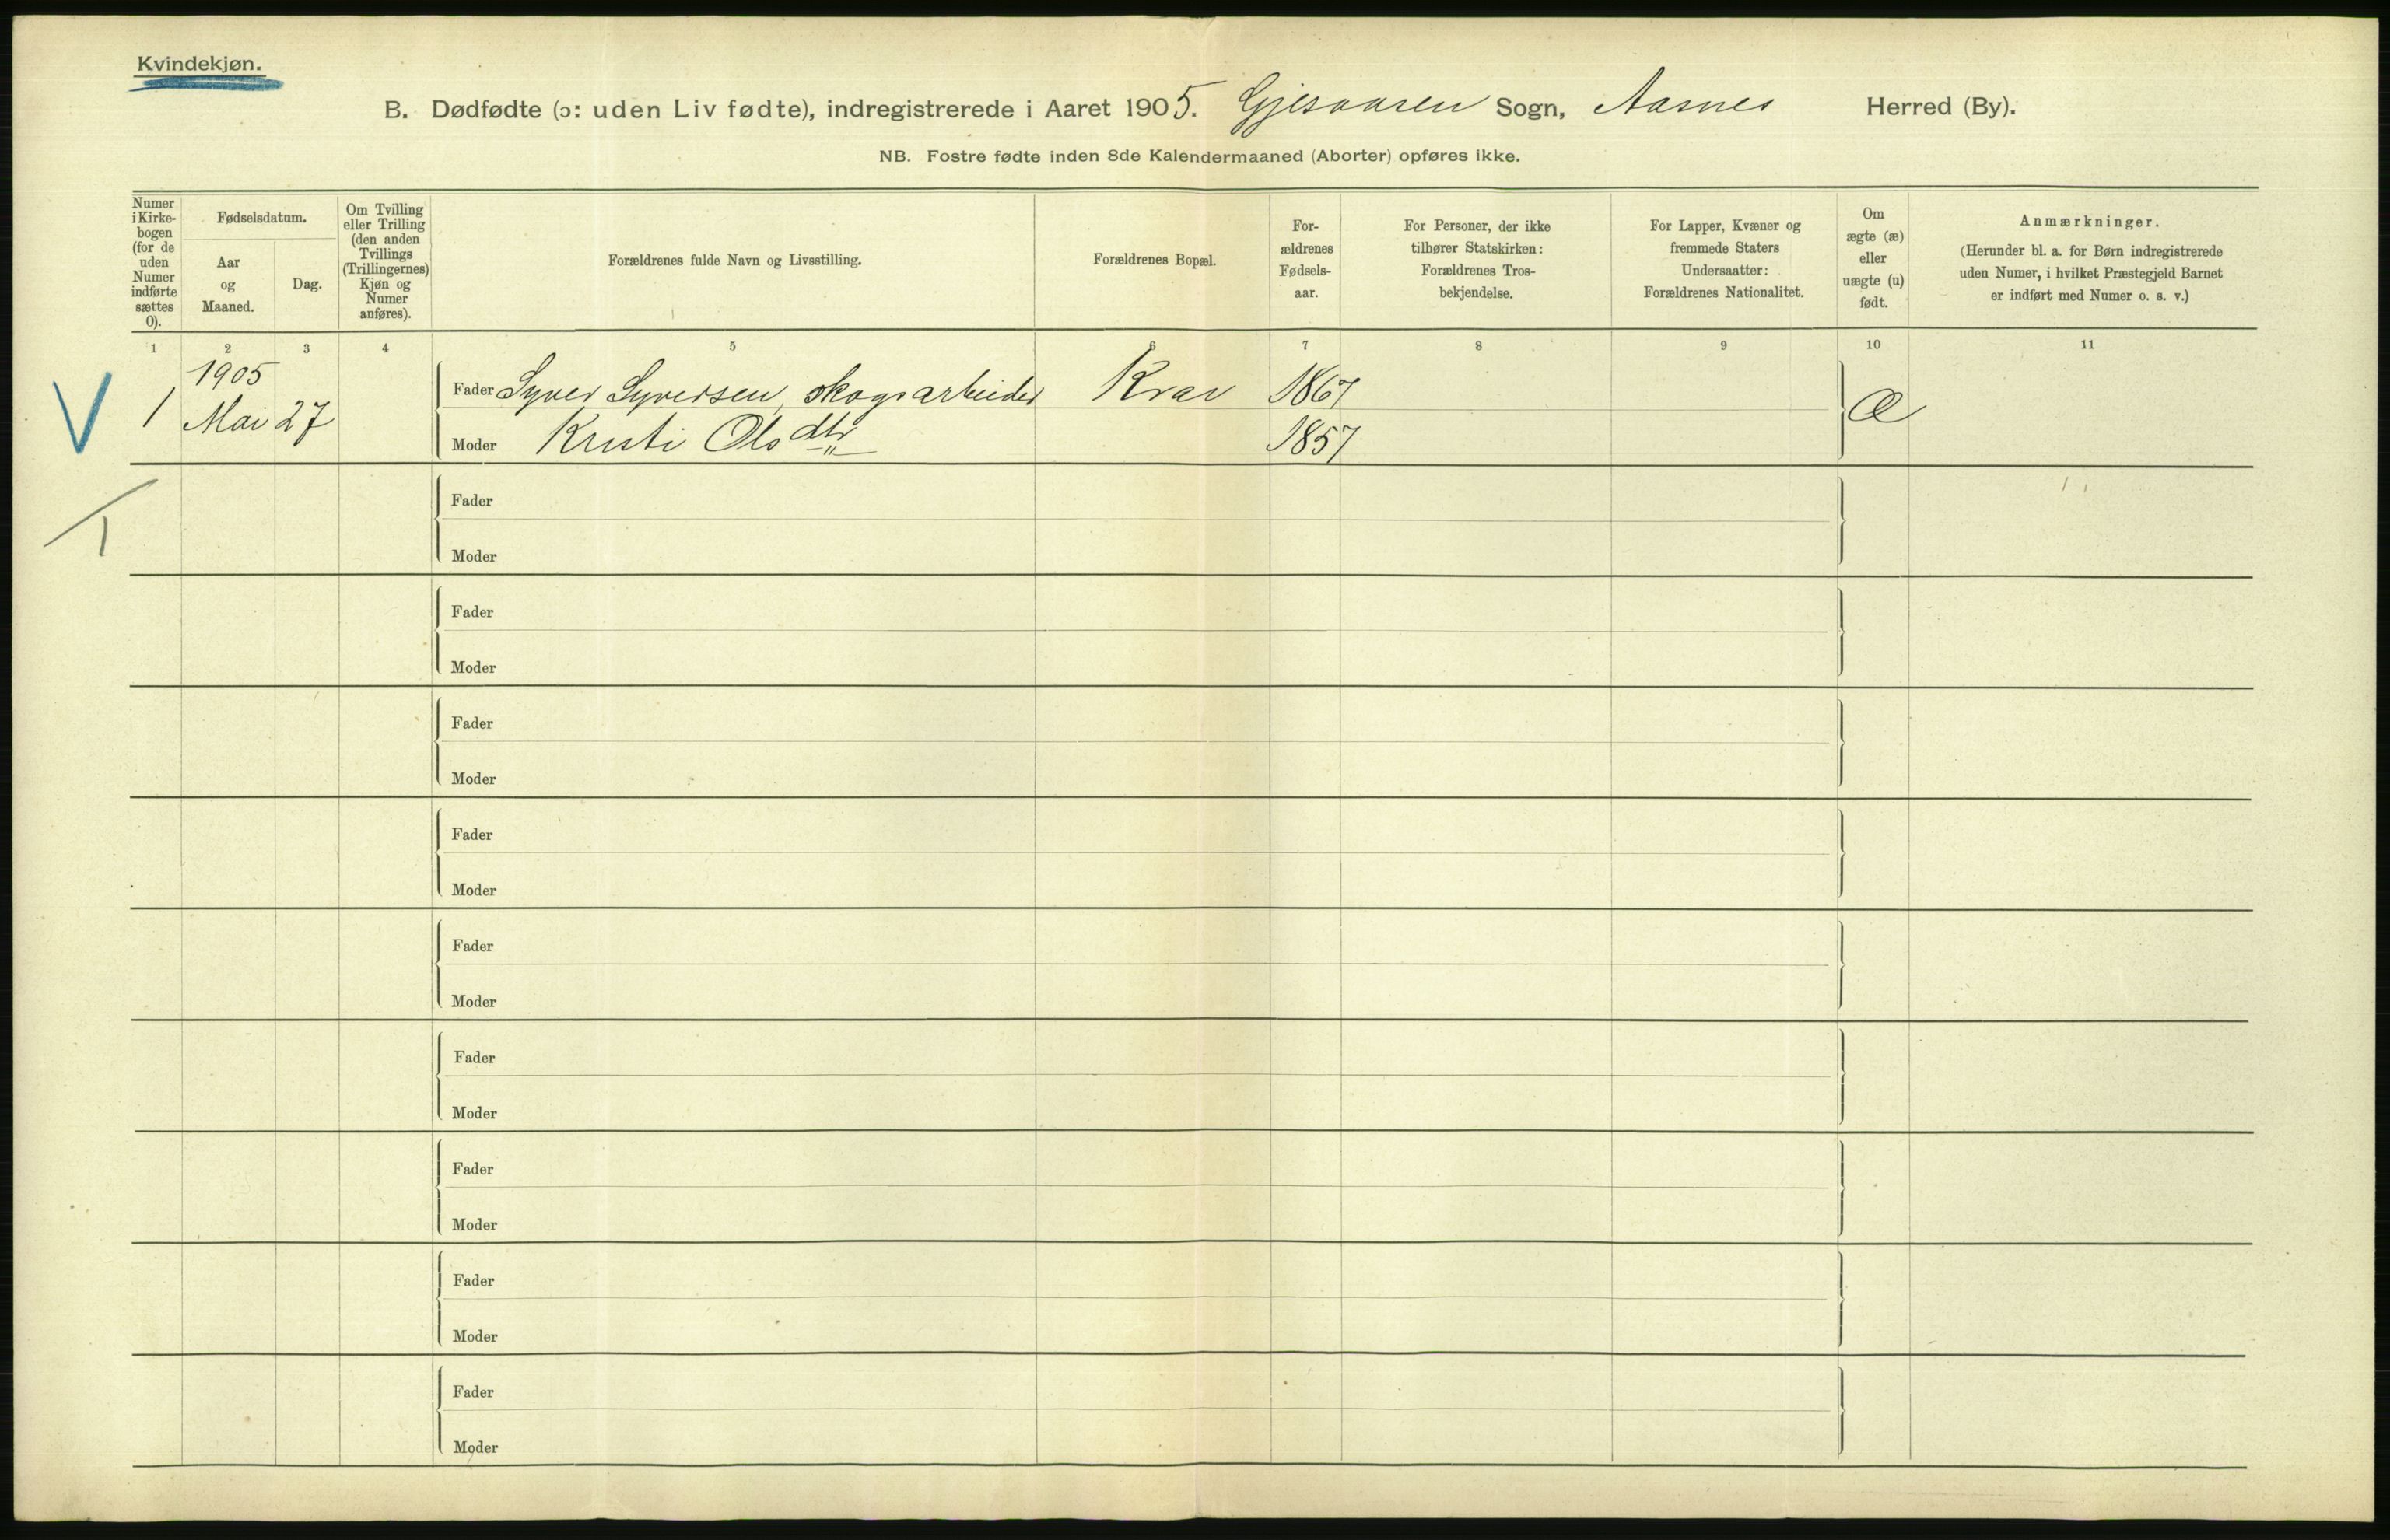 Kvindekjøn.
B. Dødfødte (ɔ: uden Liv fødte), indregistrerede i Aaret 1905. Gjesaasen Sogn, Aasnes Herred (By).
NB. Fostre fødte inden 8de Kalendermaaned (Aborter) opføres ikke.
Numer i Kirke-bogen (for de uden Numer indførte sættes 0).
Fødselsdatum.
Aar og Maaned.
Dag.
Om Tvilling eller Trilling (den anden Tvillings (Trillingernes) Kjøn og Numer anføres).
Forældrenes fulde Navn og Livsstilling.
Forældrenes Bopæl.
For-ældrenes Fødsels-aar.
For Personer, der ikke tilhører Statskirken: Forældrenes Tros-bekjendelse.
For Lapper, Kvæner og fremmede Staters Undersaatter: Forældrenes Nationalitet.
Om ægte (æ) eller uægte (u) født.
Anmærkninger.
(Herunder bl. a. for Børn indregistrerede uden Numer, i hvilket Præstegjeld Barnet er indført med Numer o. s. v.)
1 2 3 4 5 6 7 8 9 10 11
1905
V 1 Mai 27
Fader Syver Syversen, skogsarbeider Kvær 1867
Moder Kristi Olsdtr 1857
Æ
Fader
Moder
Fader
Moder
Fader
Moder
Fader
Moder
Fader
Moder
Fader
Moder
Fader
Moder
Fader
Moder
Fader
Moder